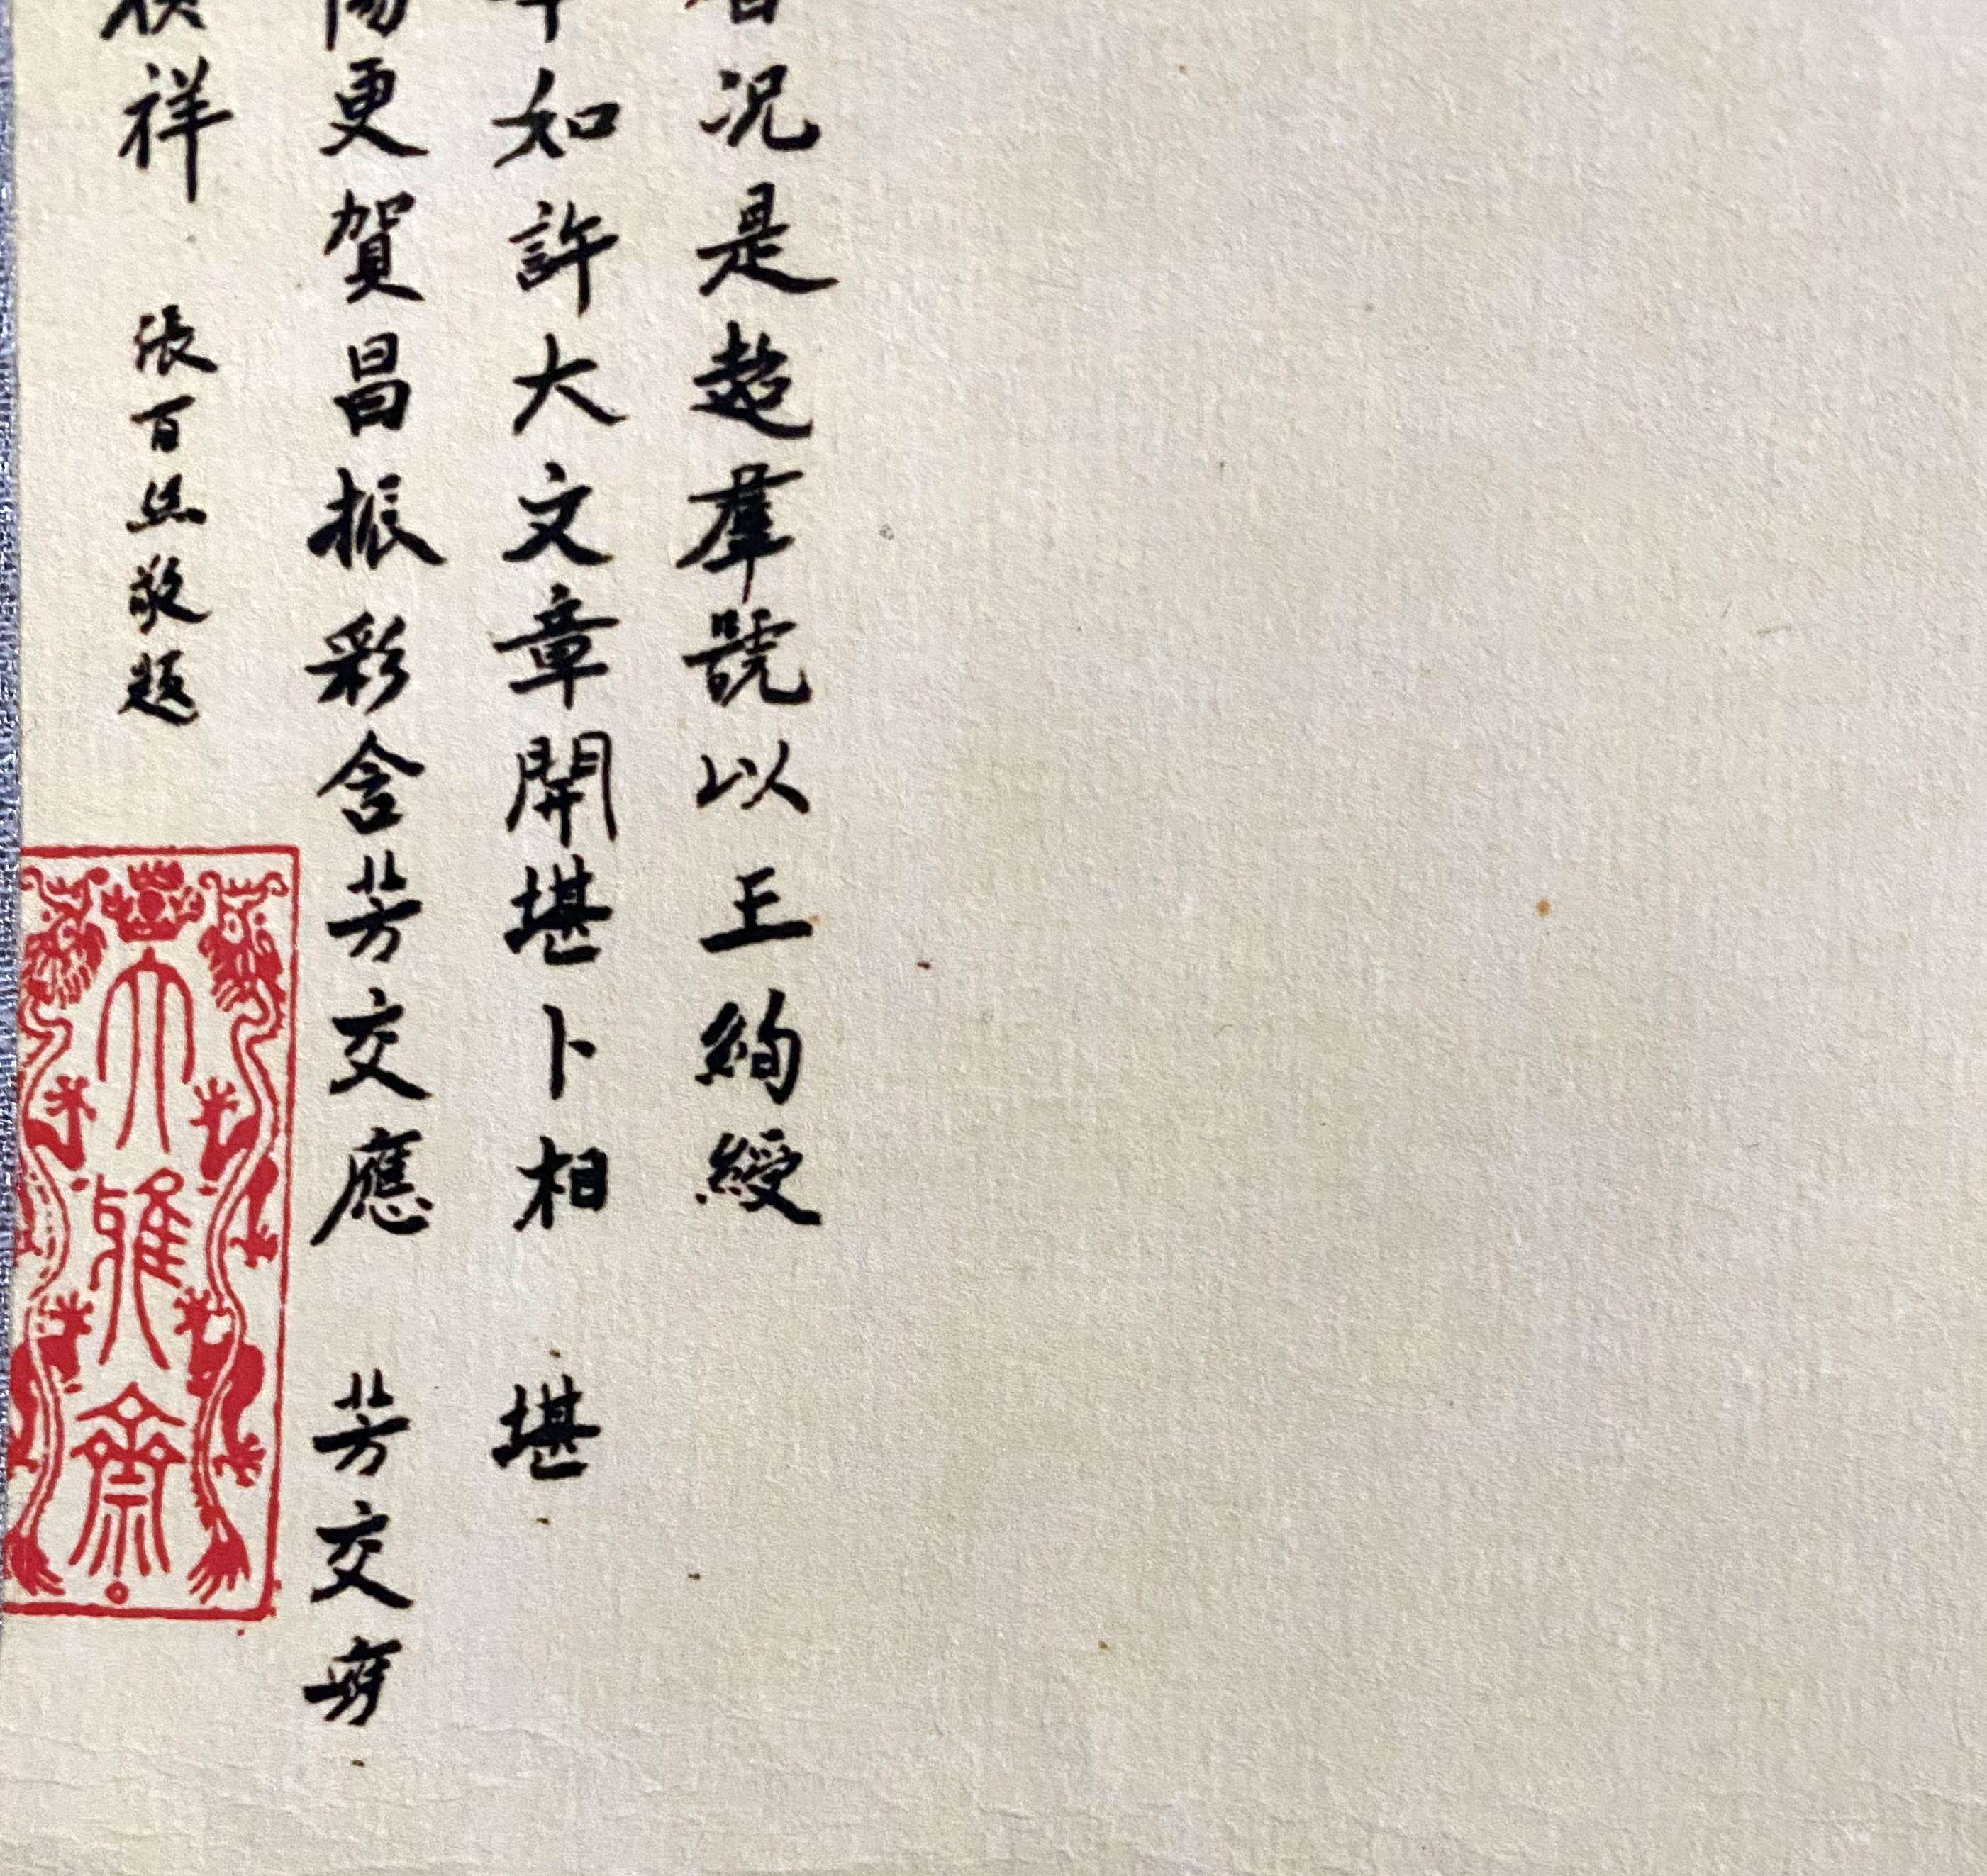 況是超羣號以王絢綬
如許大文章開堪卜相 堪
更賀昌振彩含芳交應 芳交
祥 張百熙敬題
大雅齋